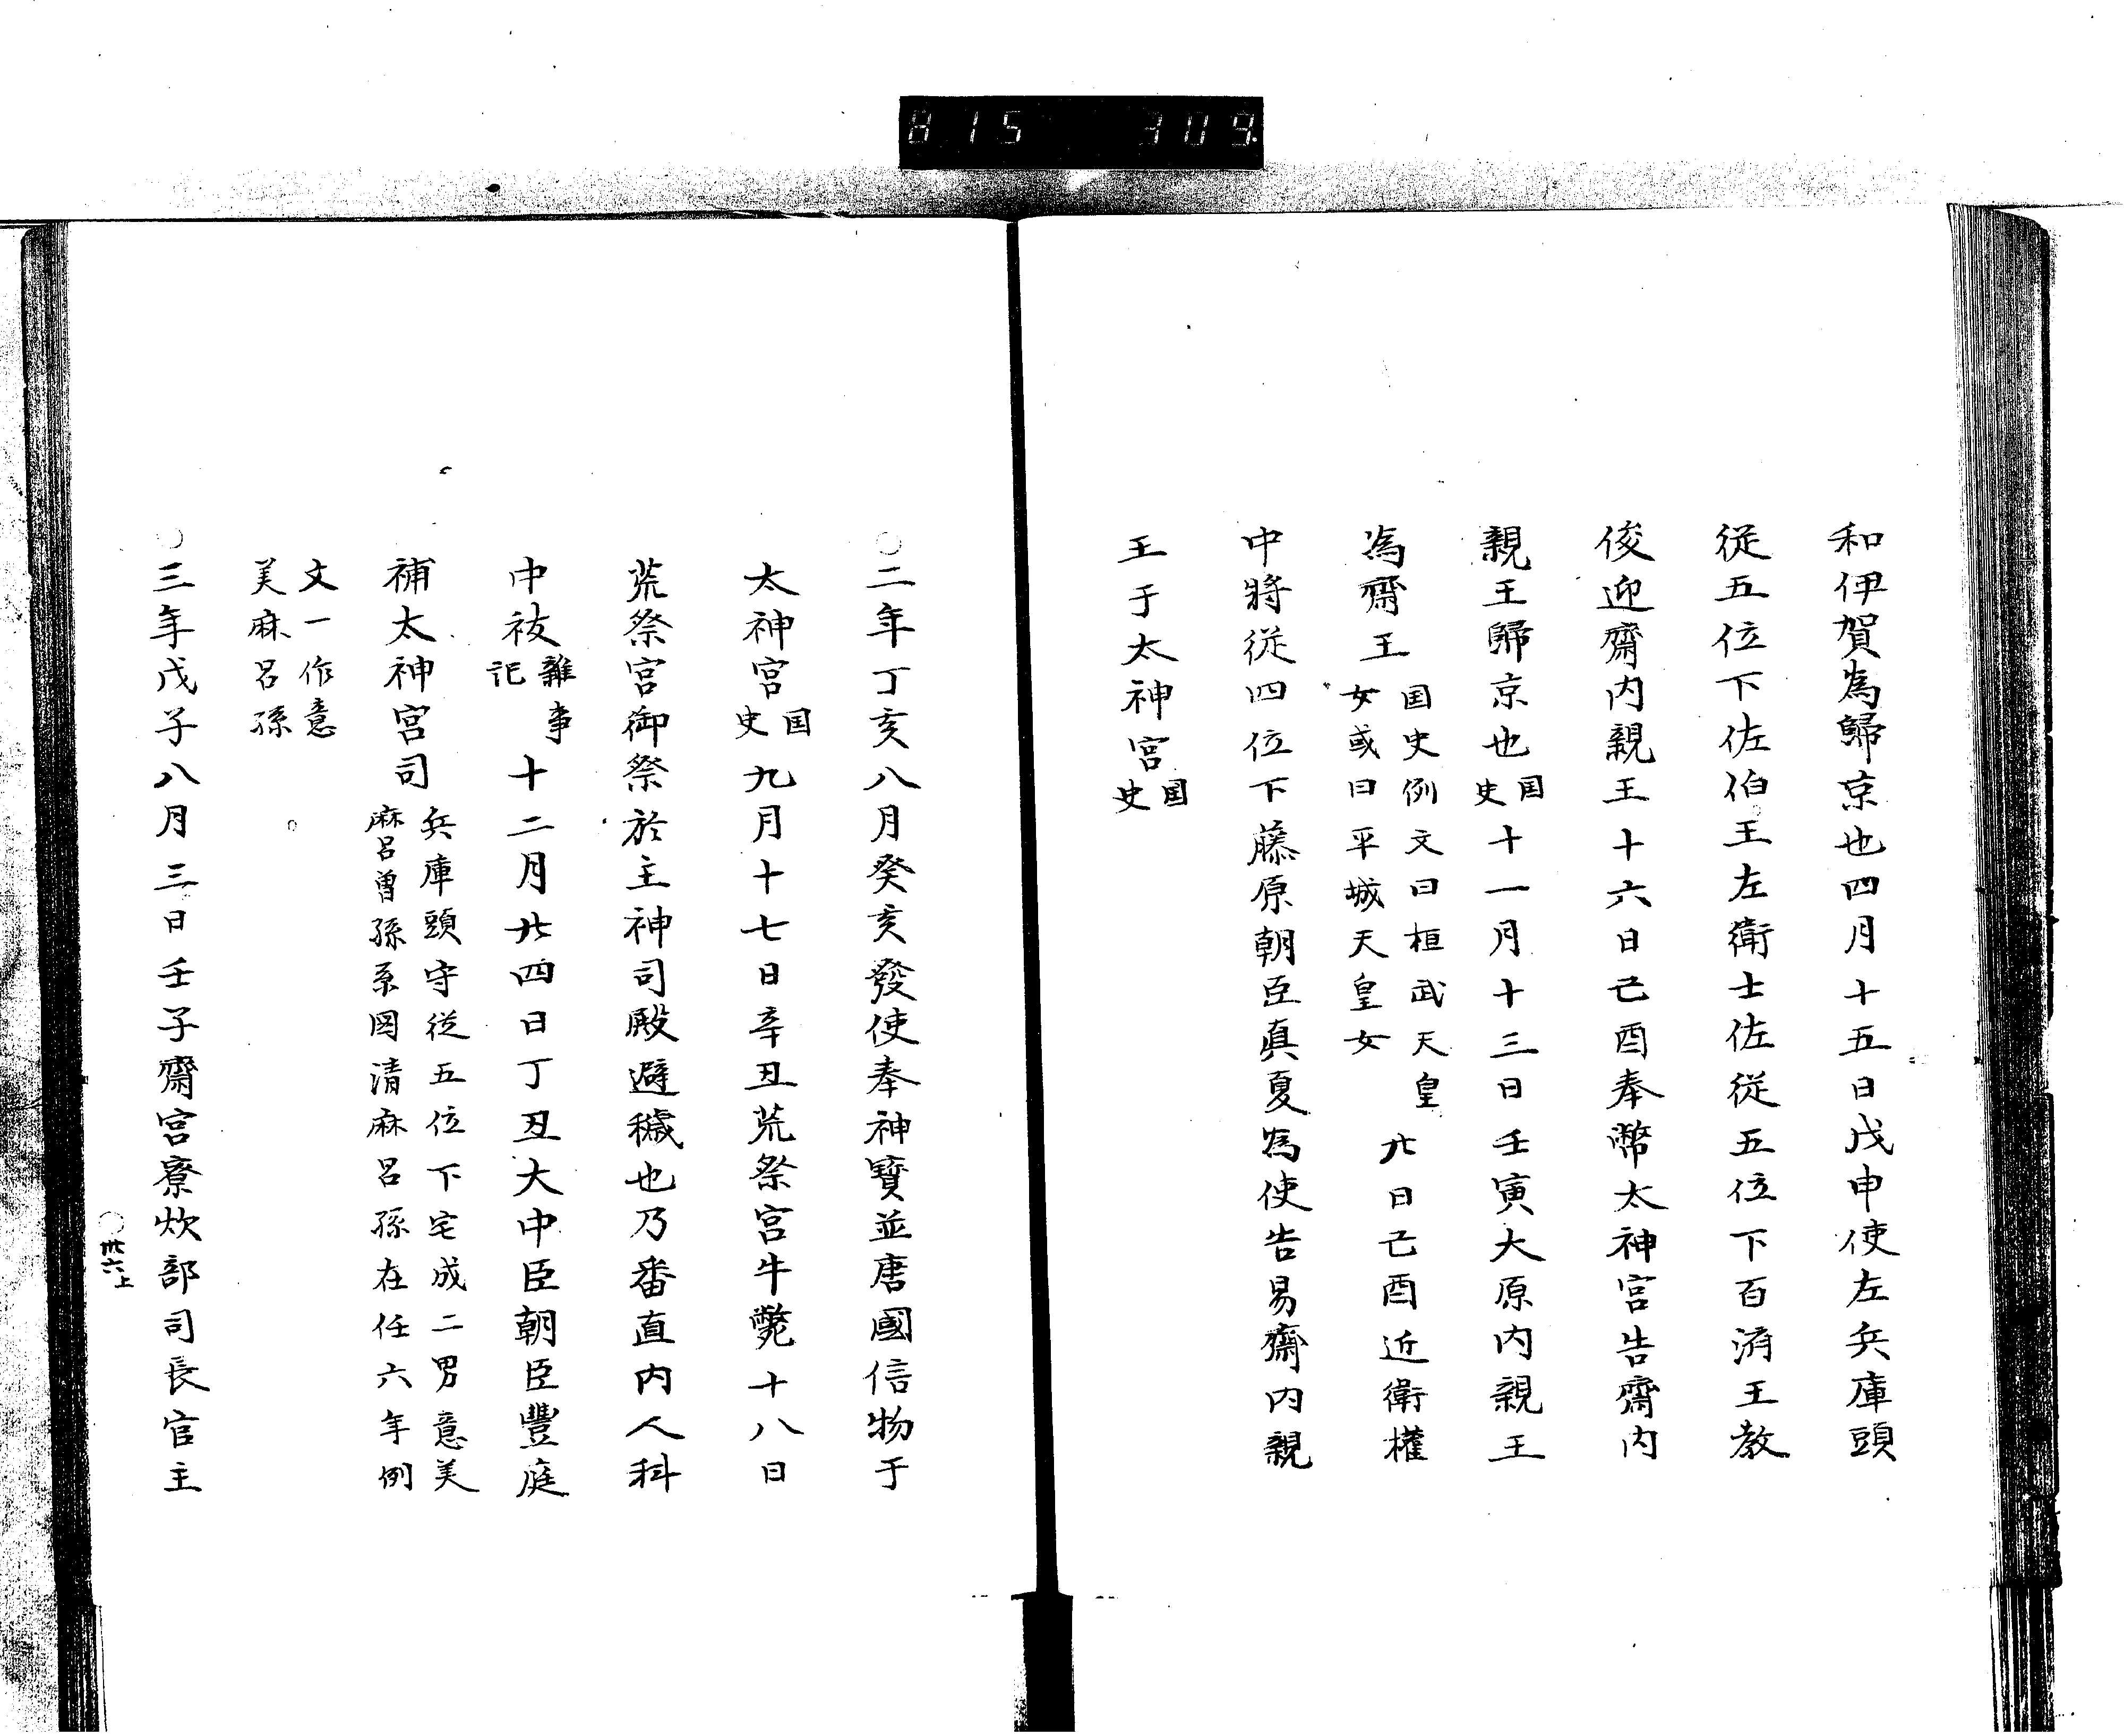 815 309
和伊賀為歸京也四月十五日戊申使左兵庫頭
従五位下佐伯王左衛士佐従五位下百済王教
俊迎齋内親王十六日己酉奉幣太神宮告齋内
親王歸京也国史十一月十三日壬寅大原内親王
為齋王国史例文曰桓武天皇女或曰平城天皇女廿日己酉近衛權
中將従四位下藤原朝臣真夏為使告易齋内親
王于太神宮国史
〇二年丁亥八月癸亥發使奉神寶並唐國信物于
太神宮国史九月十七日辛丑荒祭宮牛斃十八日
荒祭宮御祭於主神司殿避穢也乃番直内人科
中祓雜事記十二月廿四日丁丑大中臣朝臣豐庭
補太神宮司兵庫頭守従五位下宅成二男意美麻呂曽孫系図清麻呂孫在任六年例
文一作意美麻呂孫
〇三年戊子八月三日壬子齋宮寮炊部司長官主
〇卅六上